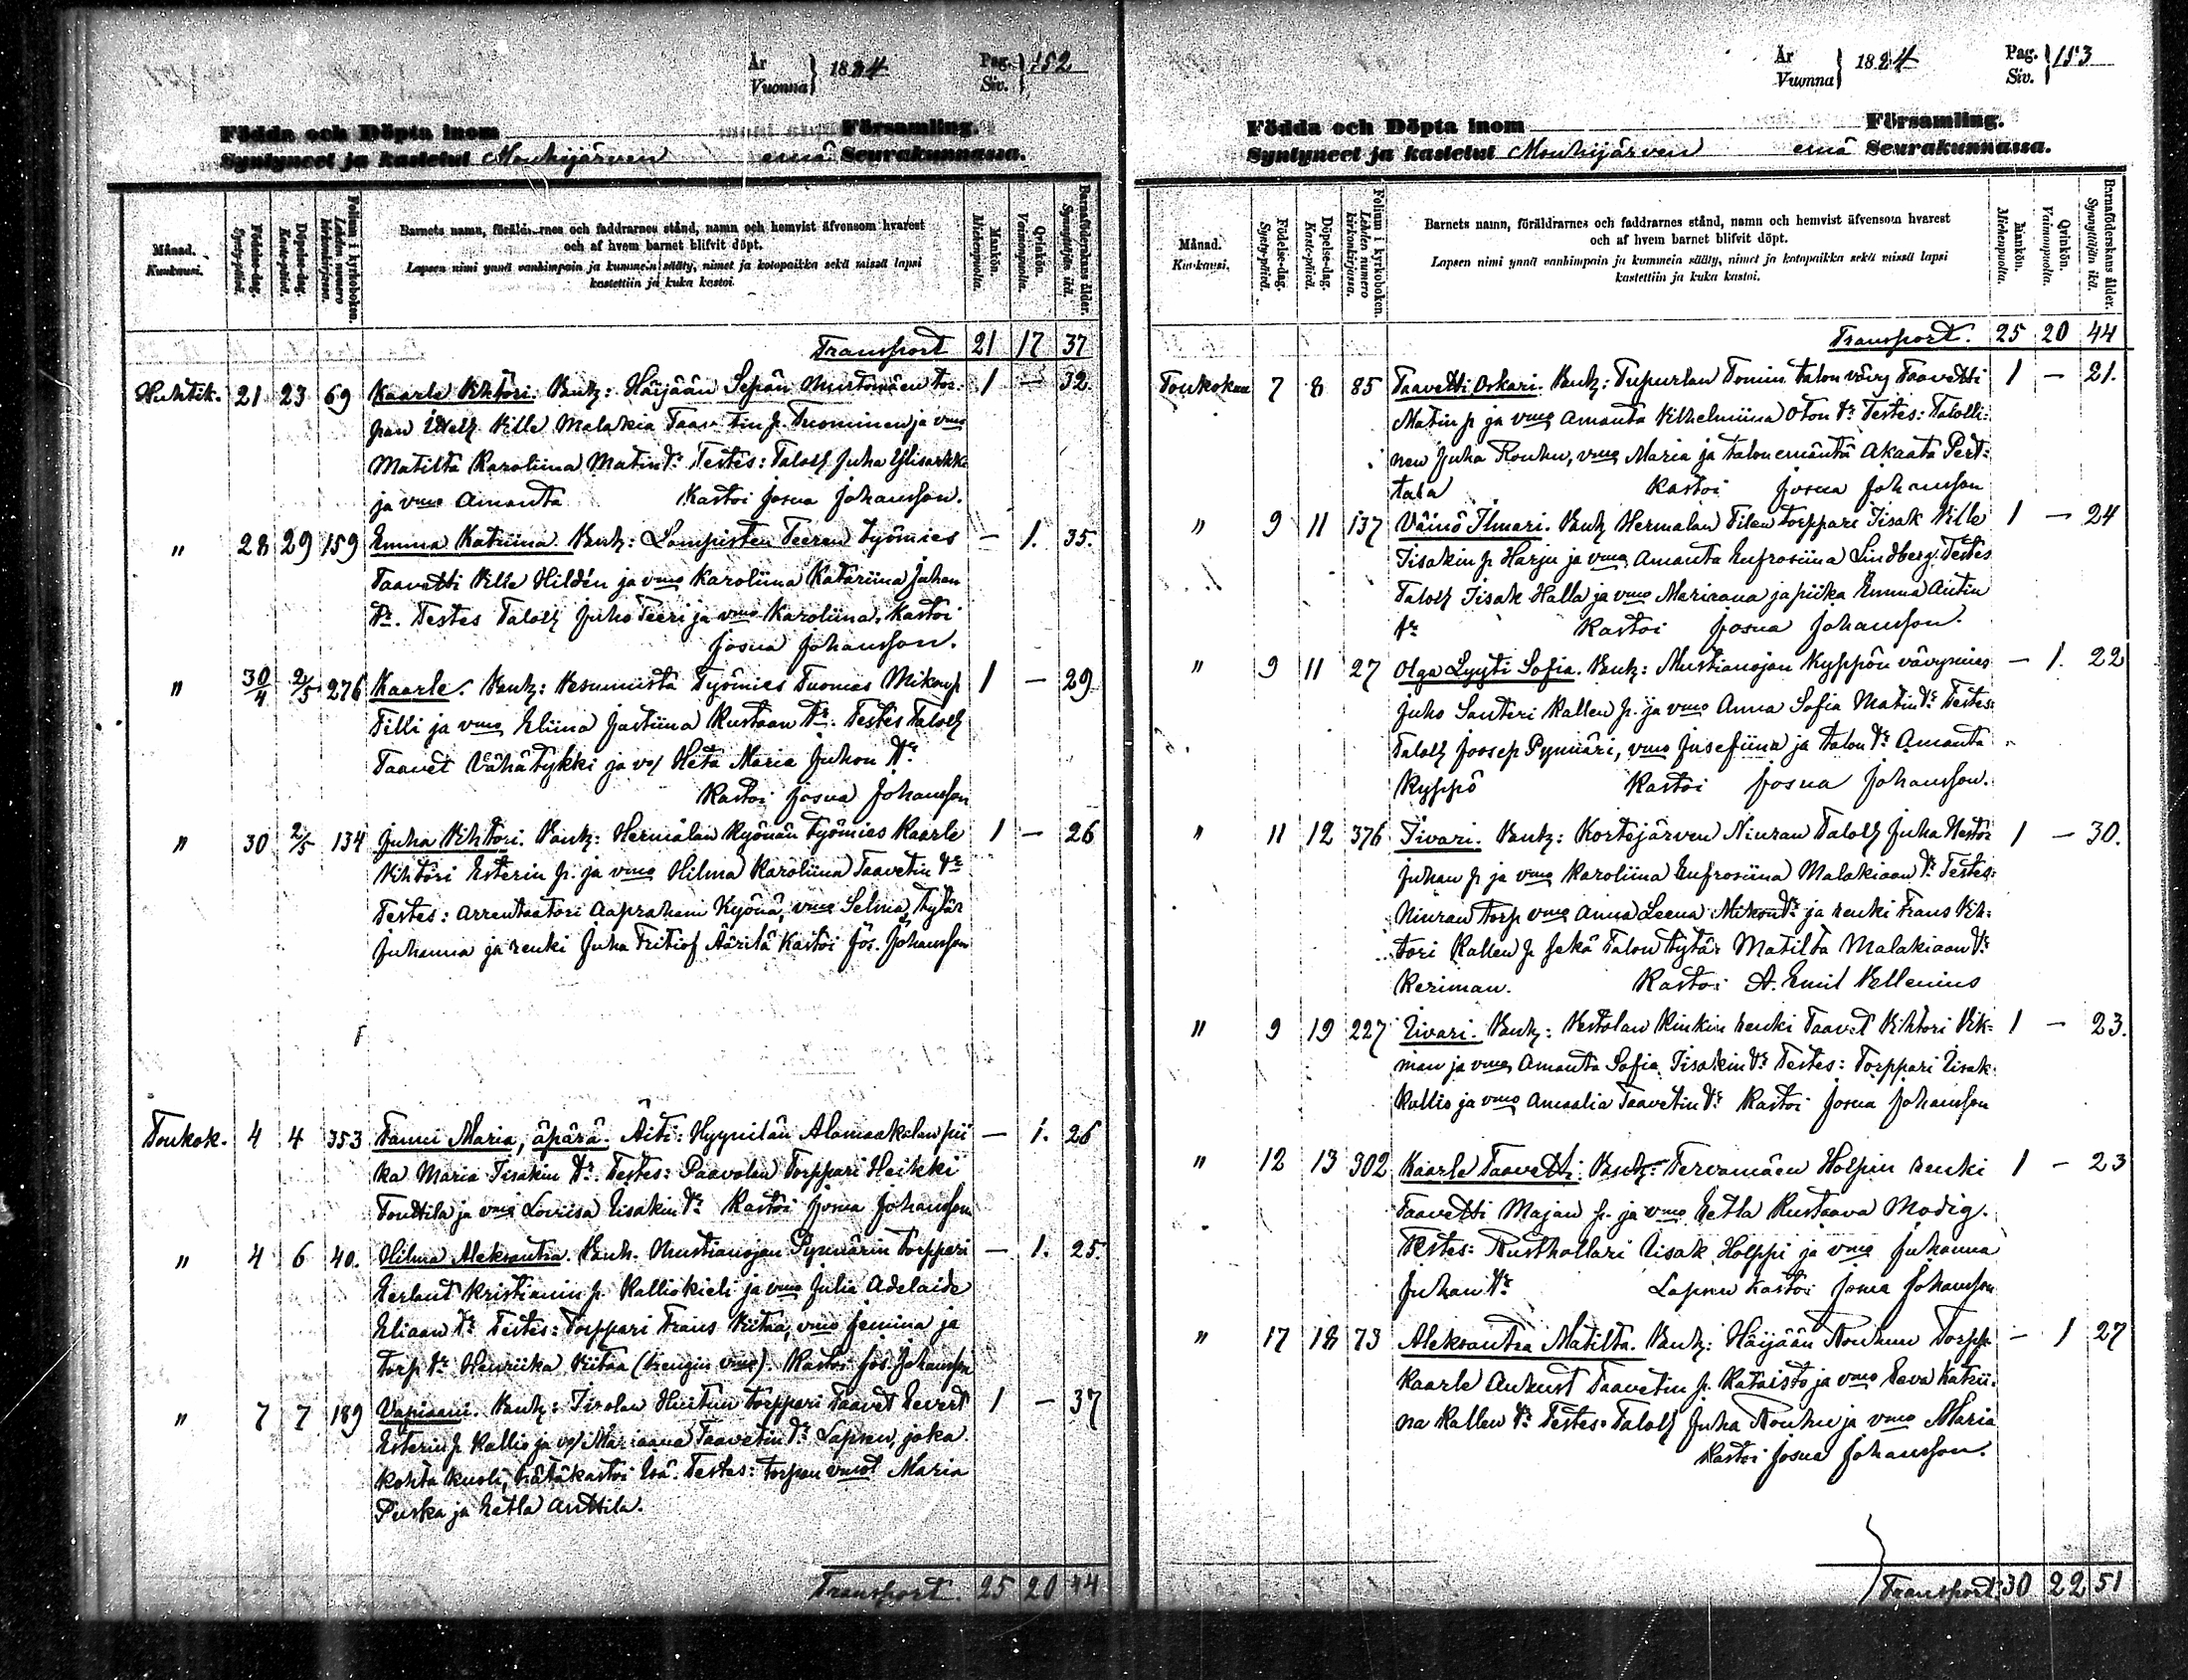 År
Vuonna } 1884
Pag.
Siv. } 152
Födda och Döpta inom Församling.
Syntyneet ja kastetut Mouhijärven emä Seurakunnassa.
Månad.
Kuukausi.
Födelse-dag.
Synty-päivä.
Döpelse-dag.
Kaste-päivä.
Folium i kyrkoboken.
Lehden numero kirkonkirjassa.
Barnets namn, föräldrarnes och faddrarnes stånd, namn och hemvist äfvensom hvarest
och af hvem barnet blifvit döpt.
Lapsen nimi ynnä vanhimpain ja kummein sääty, nimet ja kotopaikka sekä missä lapsi
kastettiin ja kuka kastoi.
Mankön.
Miehenpuolta.
Qvinkön.
Vaimonpuolta.
Barnaföderskans ålder.
Synnyttäjän ikä.
Transport 21 17 37
Huhtik. 21 23 69 Kaarle Vihtori. Vanh: Häijään Sepän Mustomäen tor- 1 — 32.
pan Ville Malakia Taavetin p. Tuominen ja vmo
Matilta Karoliina Matin tr. Testes: Taloll Juha Ylisarkki
ja vmo Amanta Kastoi Josua Johansson.
" 28 29 159 Emma Katriina Vanh: Lampisten Teeran Työmies — 1. 35.
Taavetti Ville Hildén ja vmo Karoliina Katariina Juhan
tr. Testes Taloll Juho Teeri ja vmo Karoliina. Kastoi
Josua Johansson.
" 30/4 2/5 276 Kaarle. Vanh: Vesunnista Työmies Tuomas Mikon p 1 — 29
Tilli ja vmo Eliina Justiina Kustaan tr. Testes Taloll
Taavet Vähätykki ja vo/ Heta Maria Juhon tr.
Kastoi Josua Johansson
" 30 2/5 134 Juha Vihtori. Vanh: Hermalan Kyönän Työmies Kaarle 1 — 26
Vihtori Esterin p. ja vmo Hilma Karoliina Taavetin tr
Testes: Arrentaatori Aapraham Kyönä, vmo Selma, Tytär
Juhanna ja renki Juha Fritiof Äärilä Kastoi Jos. Johansson
Toukok. 4 4 353 Fanni Maria, äpärä. Äiti: Hyynilän Alamaakalan pii — 1. 26
ka Maria Iisakin tr. Testes: Paavolan Torppari Heikki
Tonttila ja vmo Loviisa Iisakin tr Kastoi Josua Johansson
" 4 6 40. Hilma Aleksantra. Vanh. Mustianojan Pynnärin Torppari — 1. 25
Eerlant Kristianin p. Kalliokieli ja vmo Julia Adelaide
Eliaan tr Testes: Torppari Frans Viitaa, vmo Jemina ja
Torp tr Henriika Viitaa (rengin vmo). Kastoi Jos. Johansson
" 7 7 189 Vapiaani. Vanh: Tirolan Huitun Torppari Taavet Evert 1 — 37
Esterin p Kallio ja vo/ Mariaana Taavetin tr Lapsen, joka
kohta kuoli, hätäkastoi Isä. Testes: torpan vmot Maria
Puska ja Eetla Anttila.
Transport. 25 20 44
År
Vuonna } 1884
Pag.
Siv. } 153
Födda och Döpta inom Församling.
Syntyneet ja kastetut Mouhijärven emä Seurakunnassa.
Månad.
Kuukausi.
Födelse-dag.
Synty-päivä.
Döpelse-dag.
Kaste-päivä.
Folium i kyrkoboken.
Lehden numero kirkonkirjassa.
Barnets namn, föräldrarnes och faddrarnes stånd, namn och hemvist äfvensom hvarest
och af hvem barnet blifvit döpt.
Lapsen nimi ynnä vanhimpain ja kummein sääty, nimet ja kotopaikka sekä missä lapsi
kastettiin ja kuka kastoi.
Mankön.
Miehenpuolta.
Qvinkön.
Vaimonpuolta.
Barnaföderskans ålder.
Synnyttäjän ikä.
Transport. 25 20 44
Toukokuu 7 8 85 Taavetti Oskari. Vanh: Tupurlan Tomin talon vävy Taavetti 1 — 21.
Matin p ja vmo Amanta Vilhelmiina Oton tr Testes: Talolli-
nen Juha Rouhu, vmo Maria ja talon emäntä Akaata Pert-
tala Kastoi Josua Johansson
" 9 11 137 Väinö Ilmari. Vanh Hermalan Tilen torppari Iisak Ville 1 — 24
Iisakin p Harju ja vmo Amanta Eufrosiina Lindberg. Testes
Taloll Iisak Halla ja vmo Mariaana ja piika Emma Antin
tr Kastoi Josua Johansson.
" 9 11 27 Olga Lyyti Sofia. Vanh: Mustianojan Kyppön vävymies — 1. 22
Juho Santeri Kallen p. ja vmo Anna Sofia Matin tr Testes:
Taloll Joosep Pynnäri, vmo Josefiina ja talon tr Amanta
Kyppö Kastoi Josua Johansson.
" 11 12 376 Iivari. Vanh: Kortejärven Niuran Taloll Juha Nestor 1 — 30.
Juhan p ja vmo Karoliina Eufrosiina Malakiaan tr Testes:
Niuran Torp vmo Anna Leena Mikon tr ja renki Frans Vih-
tori Kallen p sekä Talon tytär Matilta Malakiaan tr
Keriman. Kastoi A. Emil Vellenius
" 9 19 227 Iivari. Vanh: Vestolan Kinkin renki Taavet Vihtori Vik- 1 — 23.
man ja vmo Amanta Sofia Iisakin tr Testes: Torppari Iisak
Kallio ja vmo Amaalia Taavetin tr Kastoi Josua Johansson
" 12 13 302 Kaarle Taavetti. Vanh: Tervamäen Holpin renki 1 — 23
Taavetti Majan p. ja vmo Eetla Kustaava Modig.
Testes: Rusthollari Iisak Holppi ja vmo Juhanna
Juhan tr Lapsen Kastoi Josua Johansson
" 17 18 73 Aleksantra Matilta. Vanh: Häijään Rouhun Torpp. — 1 27
Kaarle Aukust Taavetin p. Kataisto ja vmo Eeva Katrii-
na Kallen tr Testes: Taloll Juha Rouhu ja vmo Maria
Kastoi Josua Johansson.
Transport: 30 22 51